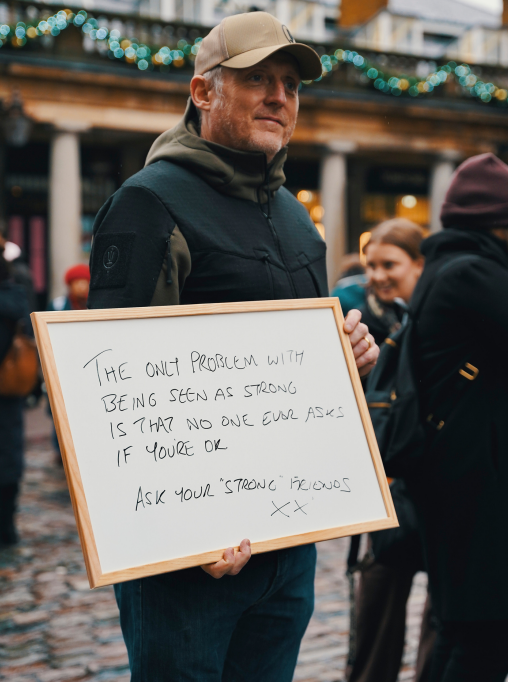 THE ONLY PROBLEM WITH
BEING SEEN AS STRONG
IS THAT NO ONE EVER ASKS
IF YOU'RE OK
ASK YOUR "STRONG" FRIENDS
XX